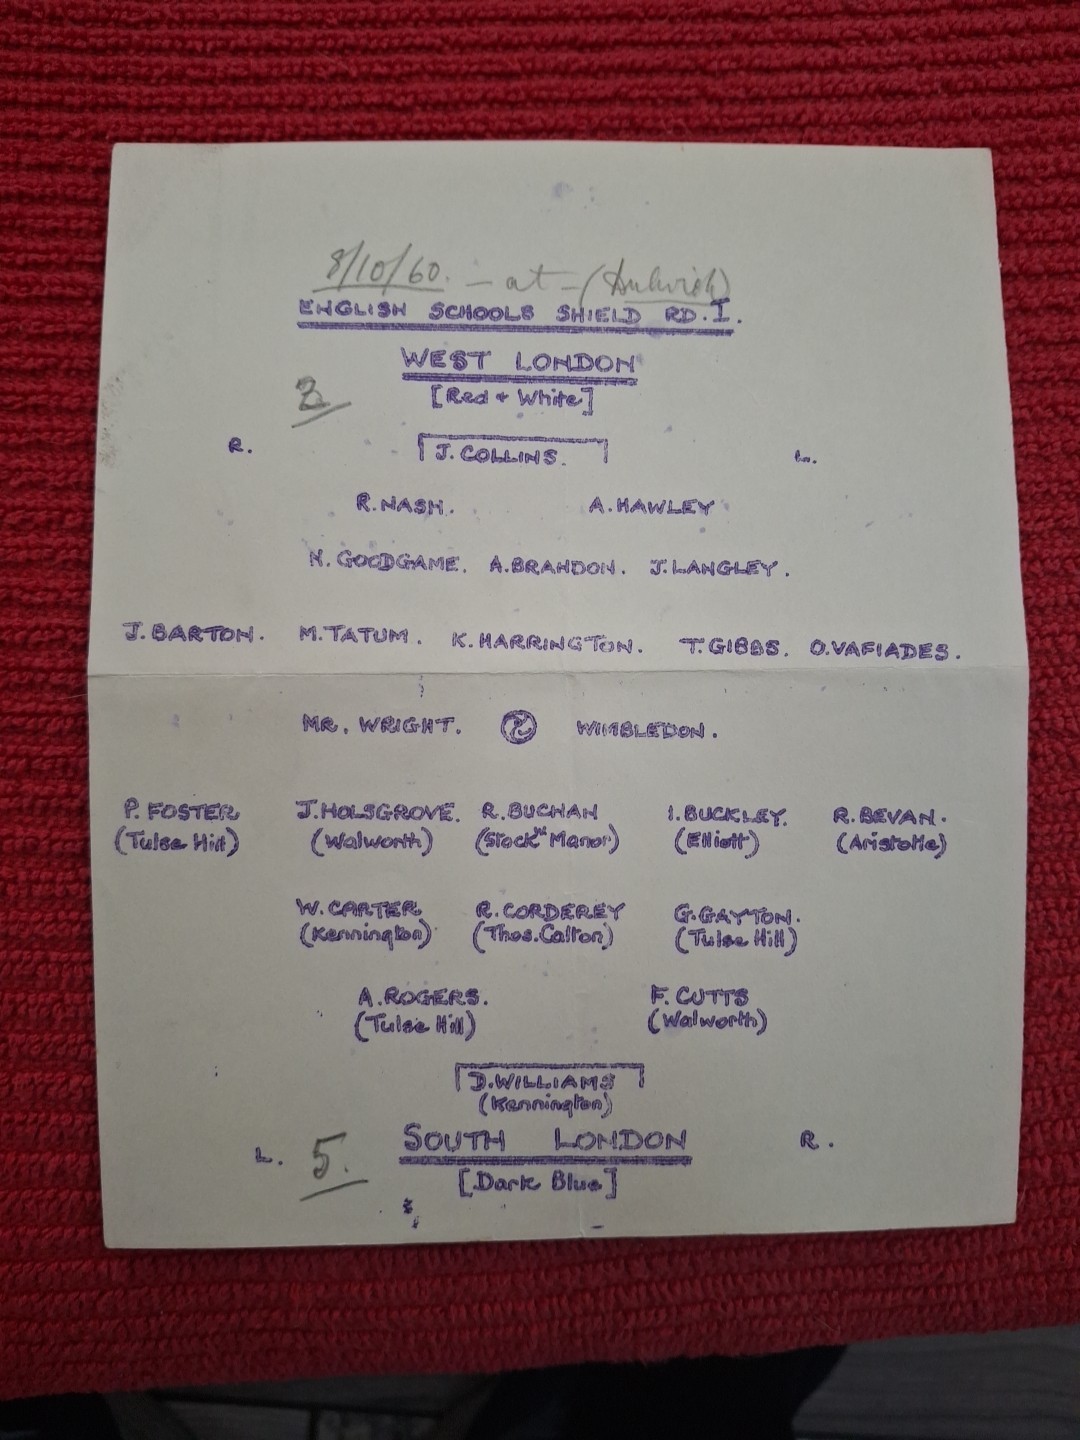 8/10/60. - at - (Dulwich)
ENGLISH SCHOOLS SHIELD RD. I.
WEST LONDON
[Red + White]
R. J. COLLINS. L.
R. NASH. A. HAWLEY
N. GOODGAME. A. BRANDON. J. LANGLEY.
J. BARTON. M. TATUM. K. HARRINGTON. T. GIBBS. O. VAFIADES.
MR. WRIGHT. WIMBLEDON.
P. FOSTER J. HOLSGROVE. R. BUCHAN I. BUCKLEY. R. BEVAN.
(Tulse Hill) (Walworth) (Stock'll Manor) (Elliott) (Aristotle)
W. CARTER R. CORDEREY G. GAYTON.
(Kennington) (Thos. Calton) (Tulse Hill)
A. ROGERS. F. CUTTS
(Tulse Hill) (Walworth)
D. WILLIAMS
(Kennington)
L. 5. SOUTH LONDON R.
[Dark Blue]